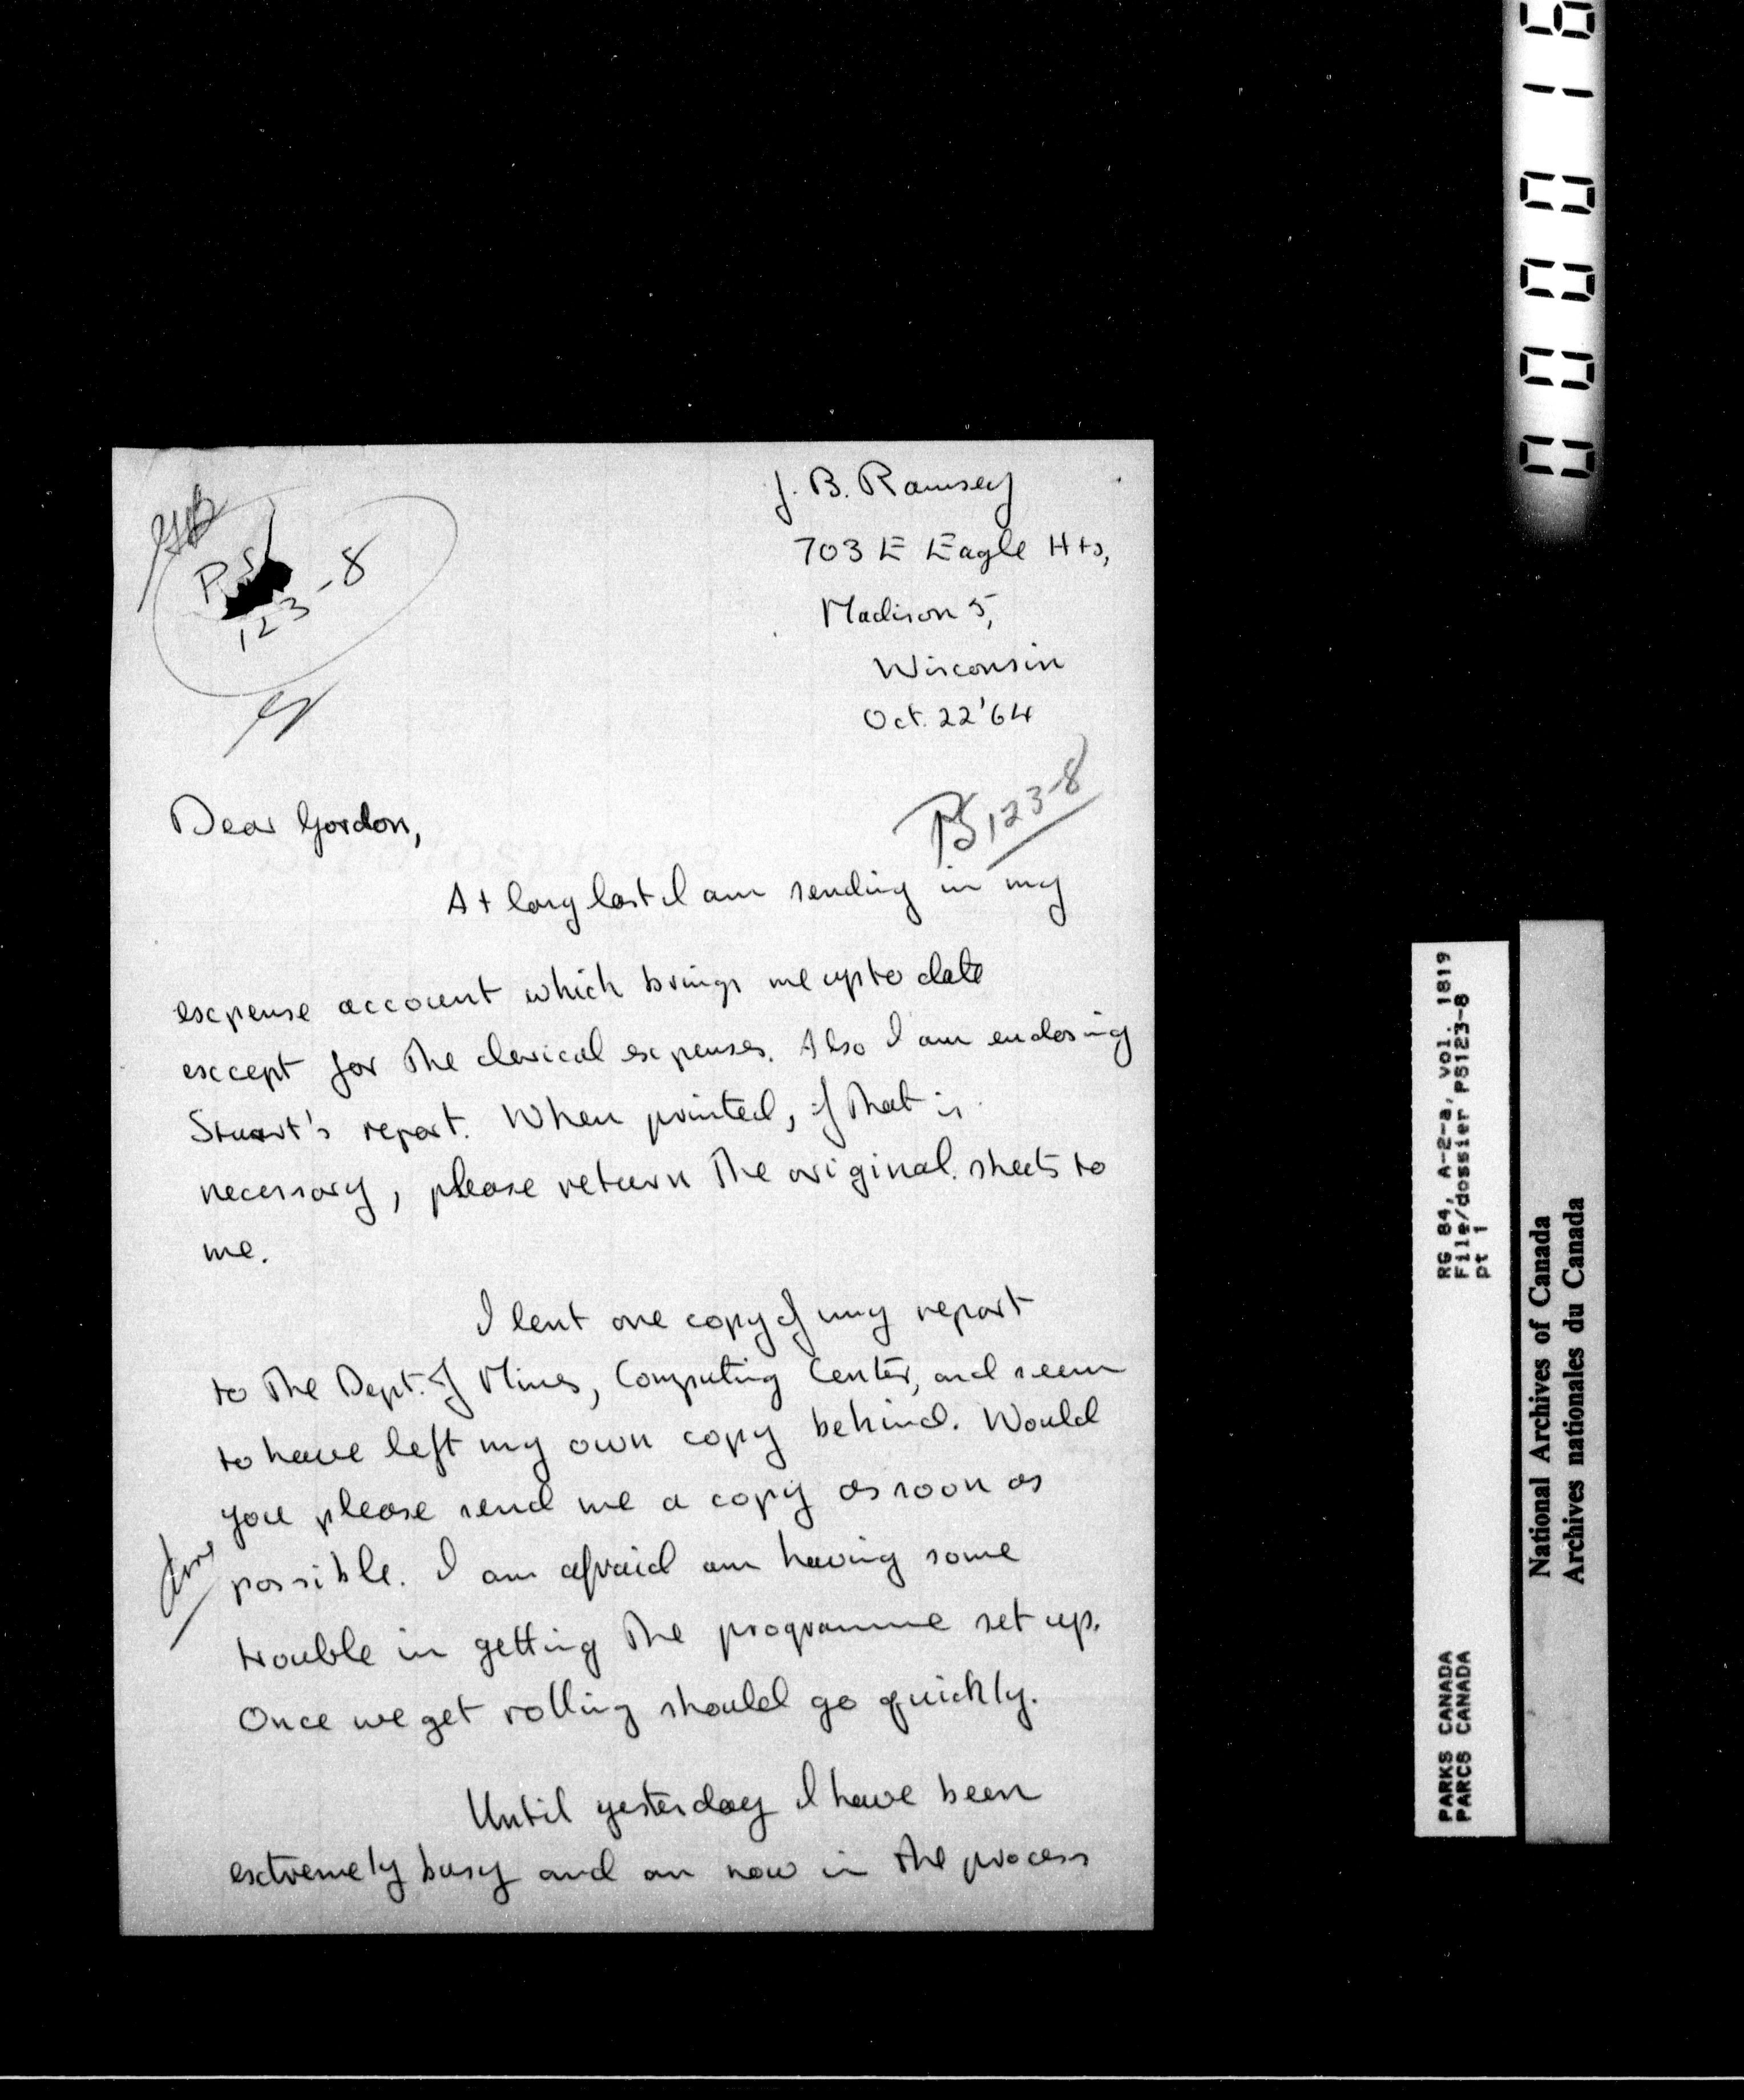 J. B. Ramsey
703 E Eagle Hts,
Madison 5,
Wisconsin
Oct. 22 '64
PS
123-8
PS 123-8
Dear Gordon,
At long last I am sending in my
expense account which brings me up to date
except for the clerical expenses. Also I am enclosing
Stuart's report. When printed, if that is
necessary, please return the original sheets to
me.
I lent one copy of my report
to the Dept. of Mines, Computing Center, and seem
to have left my own copy behind. Would
you please send me a copy as soon as
possible. I am afraid am having some
trouble in getting the programme set up.
Once we get rolling should go quickly.
Until yesterday I have been
extremely busy and am now in the process
RG 84, A-2-a, vol. 1819
File/dossier PS123-8
pt 1
PARKS CANADA
PARCS CANADA
National Archives of Canada
Archives nationales du Canada